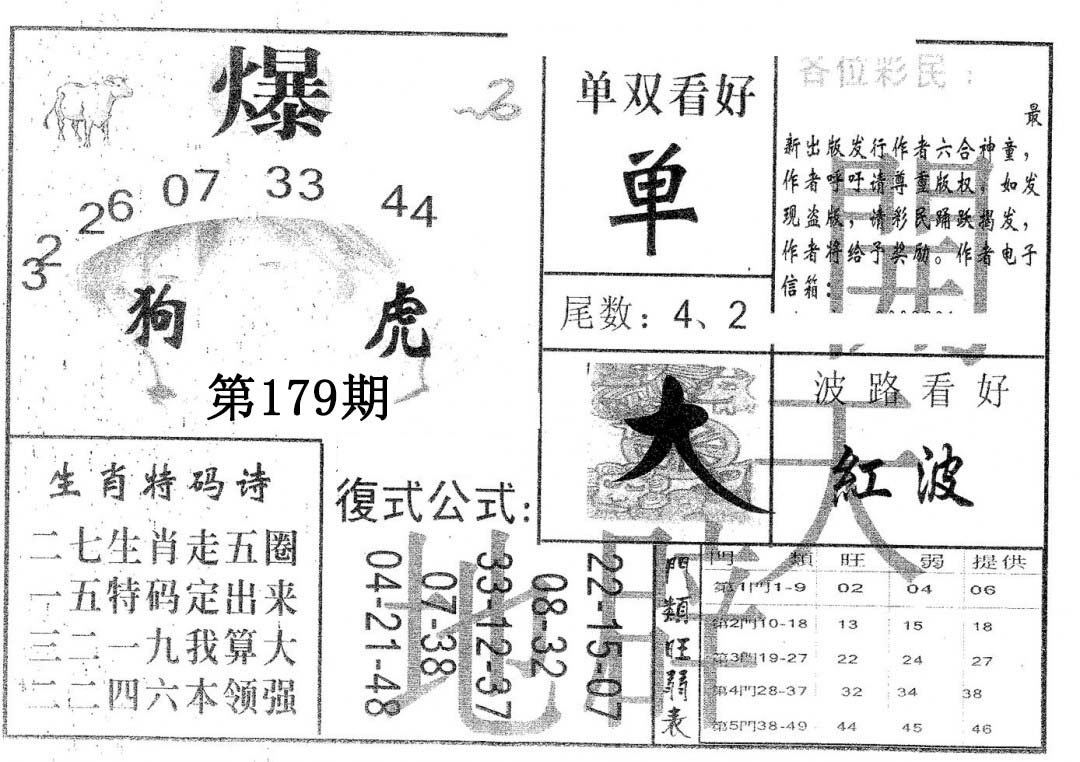 爆
07
33
26
44
32
狗
虎
第179期
单双看好
单
尾数：4、2
各位彩民：
最
新出版发行作者六合神童，
作者呼吁请尊重版权，如发
现盗版，请彩民踊跃揭发，
作者将给予奖励。作者电子
信箱：
大
波路看好
紅波
生肖特码诗
二七生肖走五圈
一五特码定出来
三二一九我算大
二二四六本领强
復式公式：
22-15-07
08-32
33-12-37
07-38
04-21-48
門類旺弱表
門 類 旺 弱 提供
第1門1-9 02 04 06
第2門10-18 13 15 18
第3門19-27 22 24 27
第4門28-37 32 34 38
第5門38-49 44 45 46